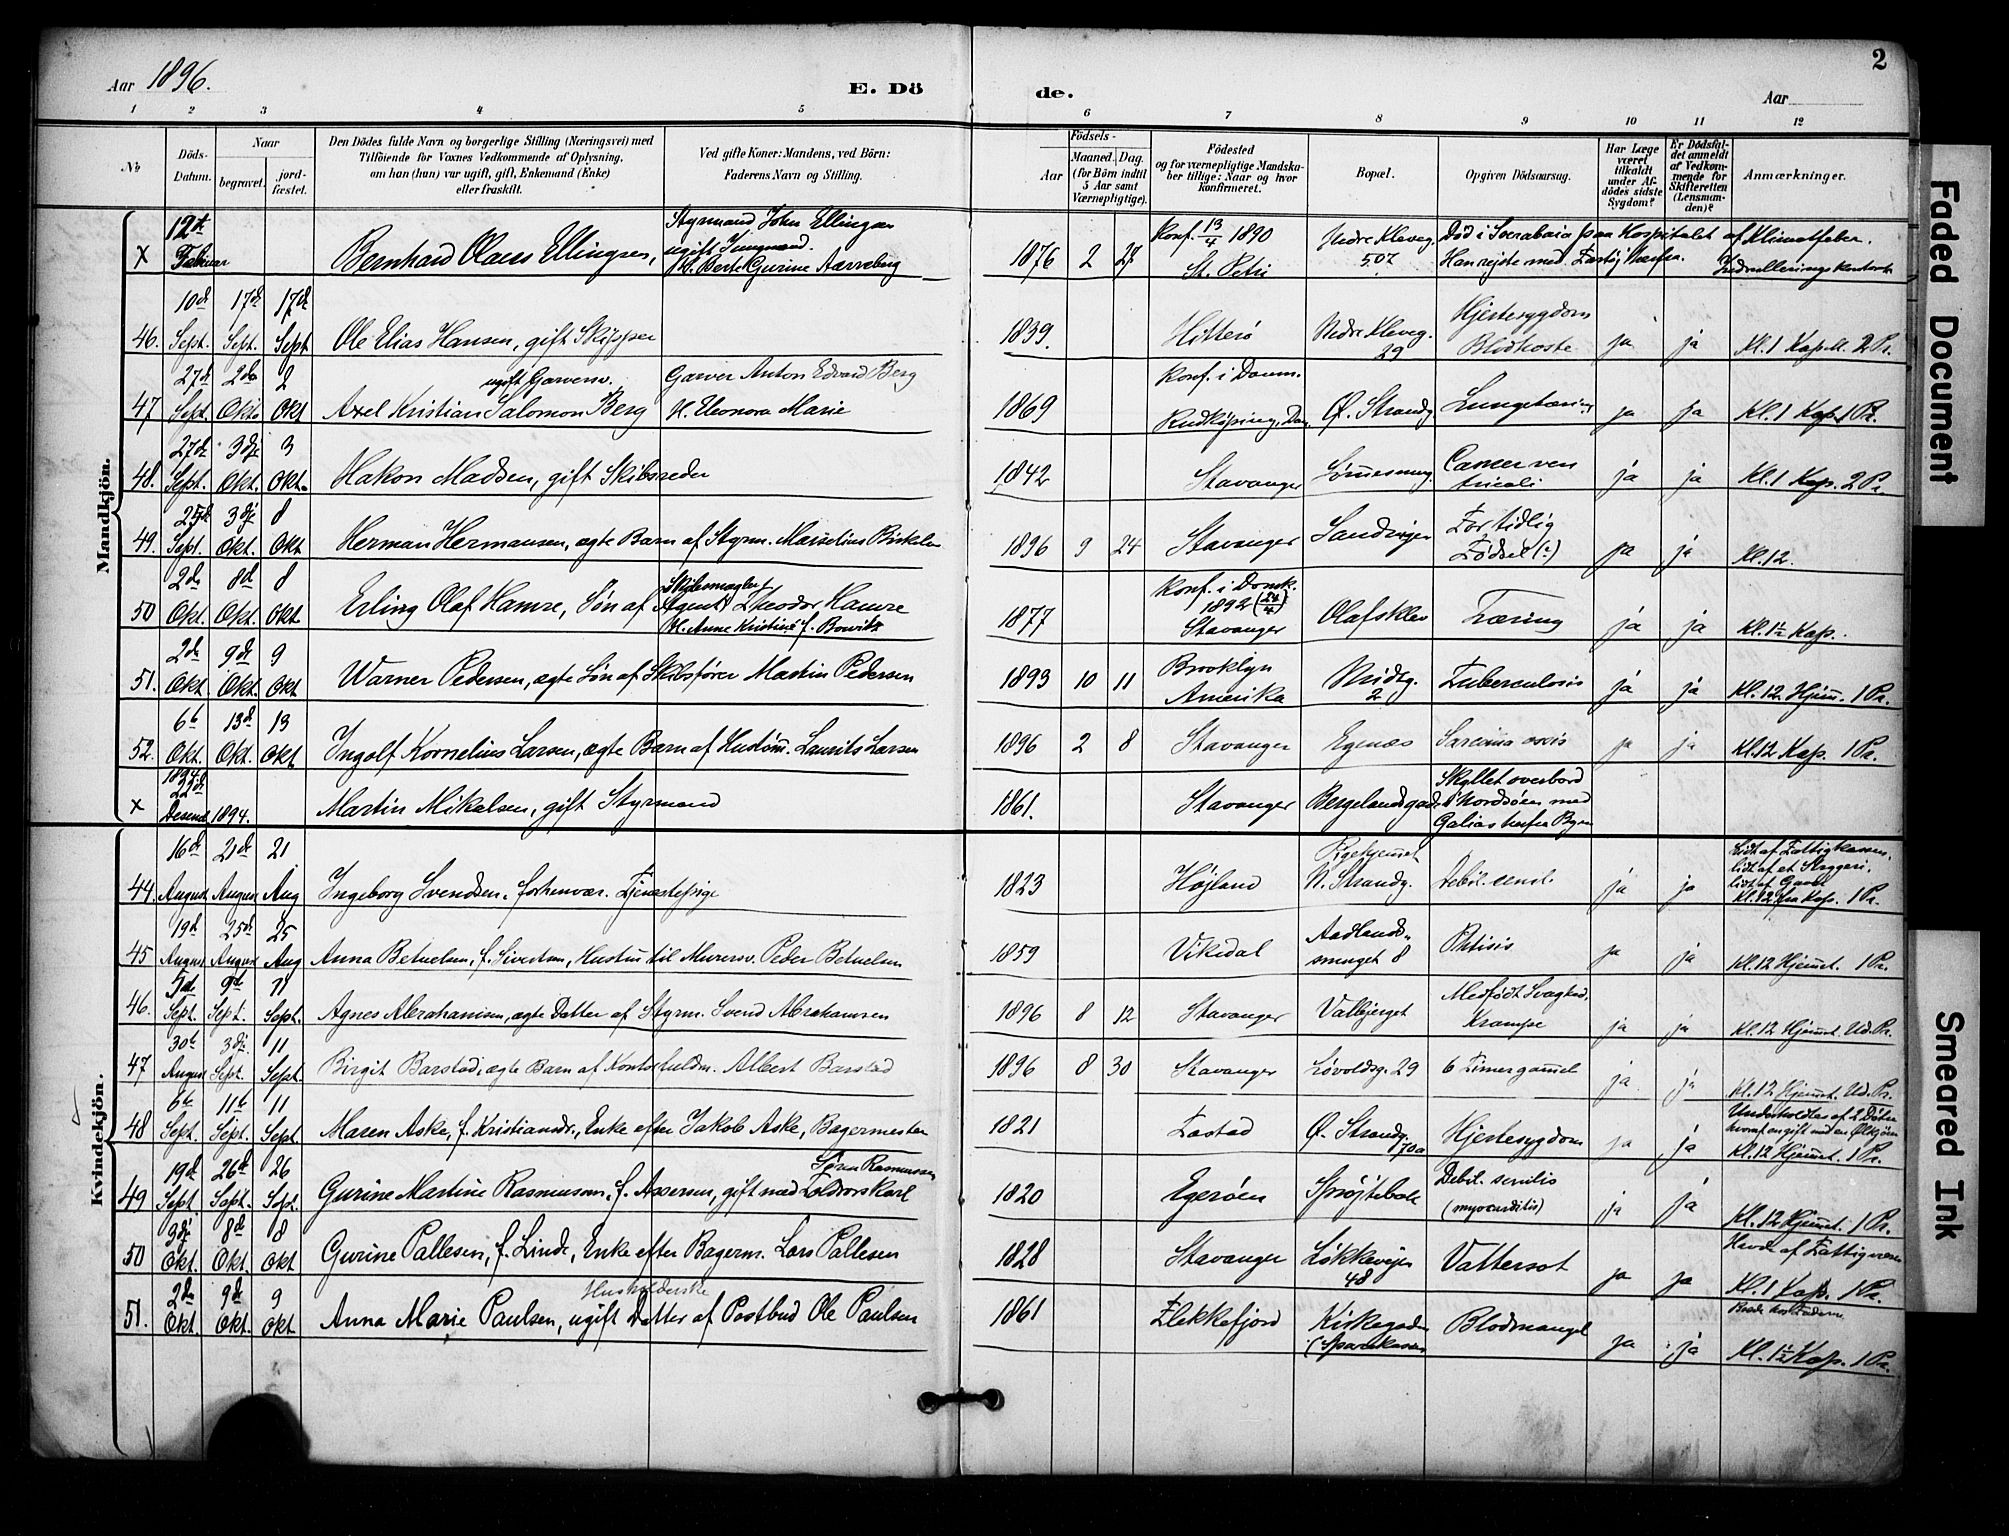 2
Aar 1896.
E. Dö de.
Aar
1 2 3 4 5 6 7 8 9 10 11 12
No
Döds-Datum.
Naar
begravet.
jord-fæstet.
Den Dödes fulde Navn og borgerlige Stilling (Næringsvei) med
Tilföiende for Voxnes Vedkommende af Oplysning,
om han (hun) var ugift, gift, Enkemand (Enke)
eller fraskilt.
Ved gifte Koner: Mandens, ved Börn:
Faderens Navn og Stilling.
Födsels-
Aar
Maaned. Dag.
(for Börn indtil
5 Aar samt
Værnepligtige).
Födested
og for værnepligtige Mandska-
ber tillige: Naar og hvor
konfirmeret.
Bopæl.
Opgiven Dödsaarsag.
Har Læge
været
tilkaldt
under Af-
dödes sidste
Sygdom?
Er Dödsfal-
det anmeldt
af Vedkom-
mende for
Skifteretten
(Lensman-
den)?
Anmærkninger.
Mandkjön.
x 12te Februar Bernhard Olaus Ellingsen, ugift Jungmand. Styrmand John Ellingsen H. Berte Gurine Aarreberg 1876 2 27 Konf. 13/4 1890 St. Petri Nedre Kleveg. 507 Död i Soerabaia paa Hospitalet af Klimatfeber. Han rejste med Fartøj herfra.
46. 10de Sept. 17de Sept. 17de Sept Ole Elias Hansen, gift Skipper 1839. Hitterø Nedre Kleveg. 29 Hjertesygdom Blodhoste ja ja Kl. 1 Kapell. 2 Pr.
47 27de Sept. 2den Okt 2 Okt Axel Kristian Salomon Berg ugift Garversv. Garver Anton Edvard Berg H. Eleonora Marie 1869 Konf. i Danm. Rudkjøping, Dan. Ø. Strandg. Lungetæring ja ja Kl. 1 Kap. 1 Pr.
48. 27de Sept. 3dje Okt. 3 Okt. Hakon Madsen, gift Skibsreder 1842 Stavanger Cancer ventriculi ja ja Kl. 1 Kap. 2 Pr.
49. 25de Sept. 3dje Okt. 8 Okt Herman Hermansen, ægte Barn af Styrm. 1896 9 24 Stavanger Sandvigen For tidlig Fødsel (?) ja ja Kl. 12.
50 2den Okt. 8de Okt. 8 Okt Erling Olaf Hamre, Søn af Skibsmægler, Agent Theodor Hamre H. Anne Kristine f. 1877 Konf. i Domk. 1892 (24/4) Stavanger Olafsklev Tæring ja ja Kl. 1½ Kap.
51. 2den Okt. 9de Okt. 9 Okt Warner Pedersen, ægte Søn af Skibsfører Martin Pedersen 1893 10 11 Brooklyn Amerika 2 Tuberculosis ja ja Kl. 12 Hjem. 1 Pr.
52. 6te Okt. 13de Okt. 13 Okt Ingolf Kornelius Larsen, ægte Barn af Hustøm. Laurits Larsen 1896 2 8 Stavanger Egenæs Sarcoma ossis ja ja Kl. 12 Kap. 1 Pr.
x 1894. 22de Desember 1894. Martin Mikalsen, gift Styrmand 1861. Stavanger Bergelandsgade Skyllet overbord i Nordsøen med Galias herfra Byen
Kvindekjön.
44. 16de August 21de August 21 Aug Ingeborg Svendsen, forhenvær. Tjenestepige 1823 Højland Pigehjemmet N. Strandg. Debil. senil. ja ja Lidt af Fattigkassen, lidt af et Kl. 12 fra Kap. 1 Pr.
45 19de August 25de August 25 Aug Anna Betuelsen, f. Sivertsen, Hustru til Murersv. Peder Betuelsen 1859 Vikedal Aadlandssmuget 8 Phtisis ja ja Kl. 12 Hjemmet. 1 Pr.
46. 5te Sept. 9de Sept. 11 Sept. Agnes Abrahamsen, ægte Datter af Styrm. Svend Abrahamsen 1896 8 12 Stavanger Valbjerget Medfødt Svaghed, Krampe ja ja Kl. 12 Hjemmet. Ud. Pr.
47 30te August 3dje Sept. 11 Sept. Birgit Barstad, ægte Barn af Kontorfuldm. Albert Barstad 1896 8 30 Stavanger Løvoldsg. 29 6 Timer gammel ja ja Kl. 12 Hjemmet. Ud. Pr.
48 6te Sept. 11te Sept. 11 Sept. Maren Aske, f. Kristiansdr., Enke efter Jakob Aske, Bagermester 1821 Fastad Ø. Strandg. 170a Hjertesygdom ja ja Understøttedes af 2 Døtre Kl. 12 Hjemmet. 1 Pr.
49 19de Sept. 26de Sept. 26 Sept. Gurine Martine Rasmussen, f. Assersen, gift med Toldvorskarl Søren Rasmussen 1820 Egerøen Sprøjtebak Debil. senilis (myocarditis) ja ja Kl. 12 Hjemmet. 1 Pr.
50 3dje Okt. 8de Okt. 8 Okt Gurine Pallesen, f. Linde, Enke efter Bagerm. Lars Pallesen 1828 Stavanger Løkkevejen 48 Vattersot ja ja af Fattigvæsen Kl. 1 Kap. 1 Pr.
51. 2den Okt. 9de Okt. 9 Okt Anna Marie Paulsen, ugift Husholderske Datter af Postbud Ole Paulsen 1861 Flekkefjord Kirkegaden (Sparekassen Blodmangel ja ja Kl. 1½ Kap. 1 Pr.
Faded Document
Smeared Ink